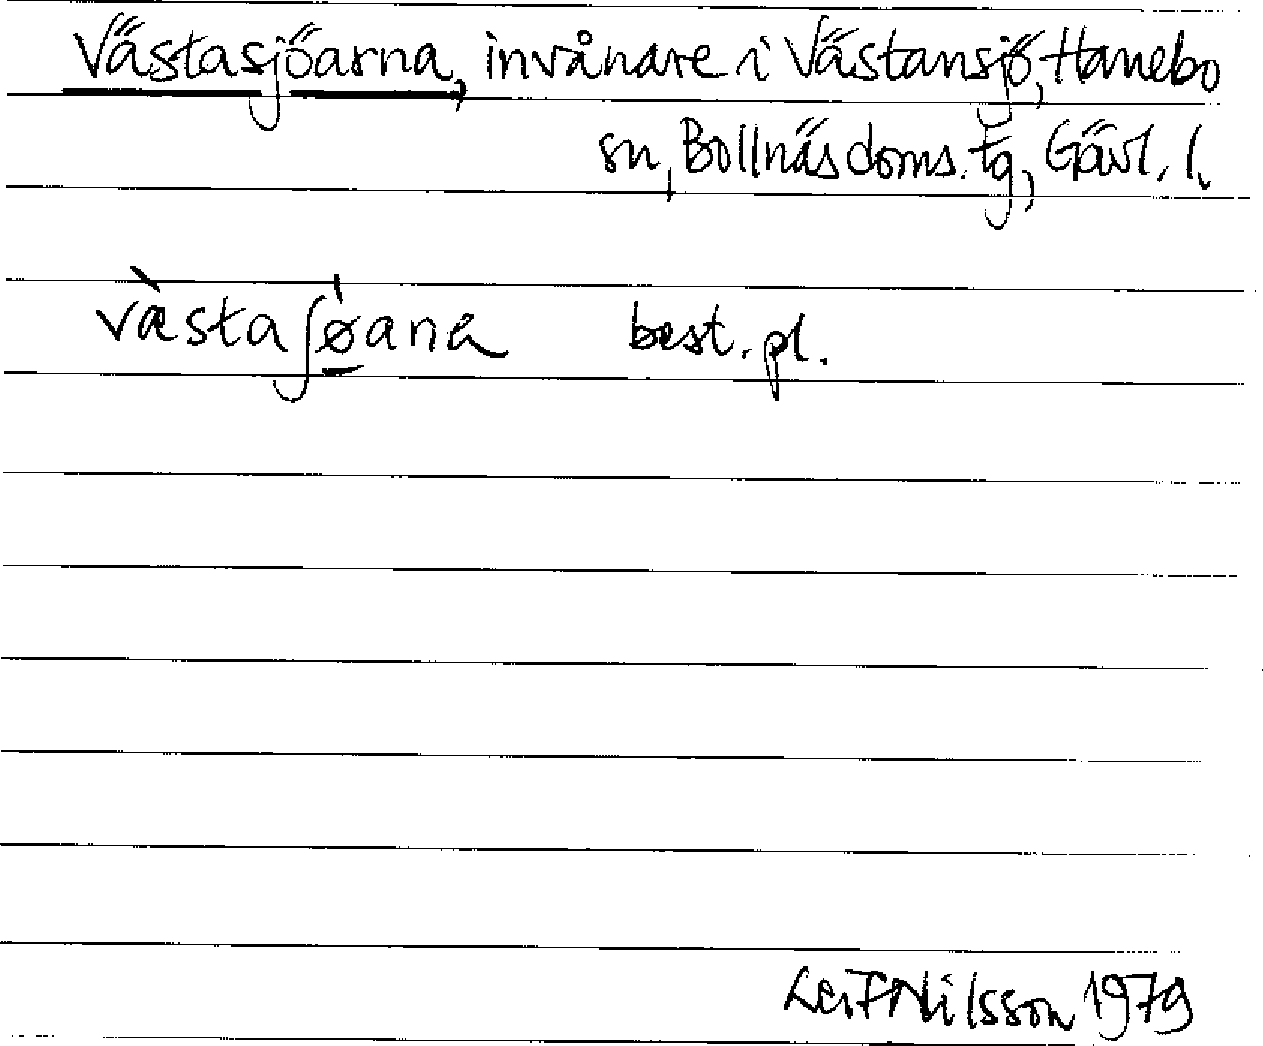 Västasjöarna, invånare i Västansjö, Hanebo
sn, Bollnäs doms. tg, Gävl. l.
væ̀staʃǿ̱ana best. pl.
Leif Nilsson 1979